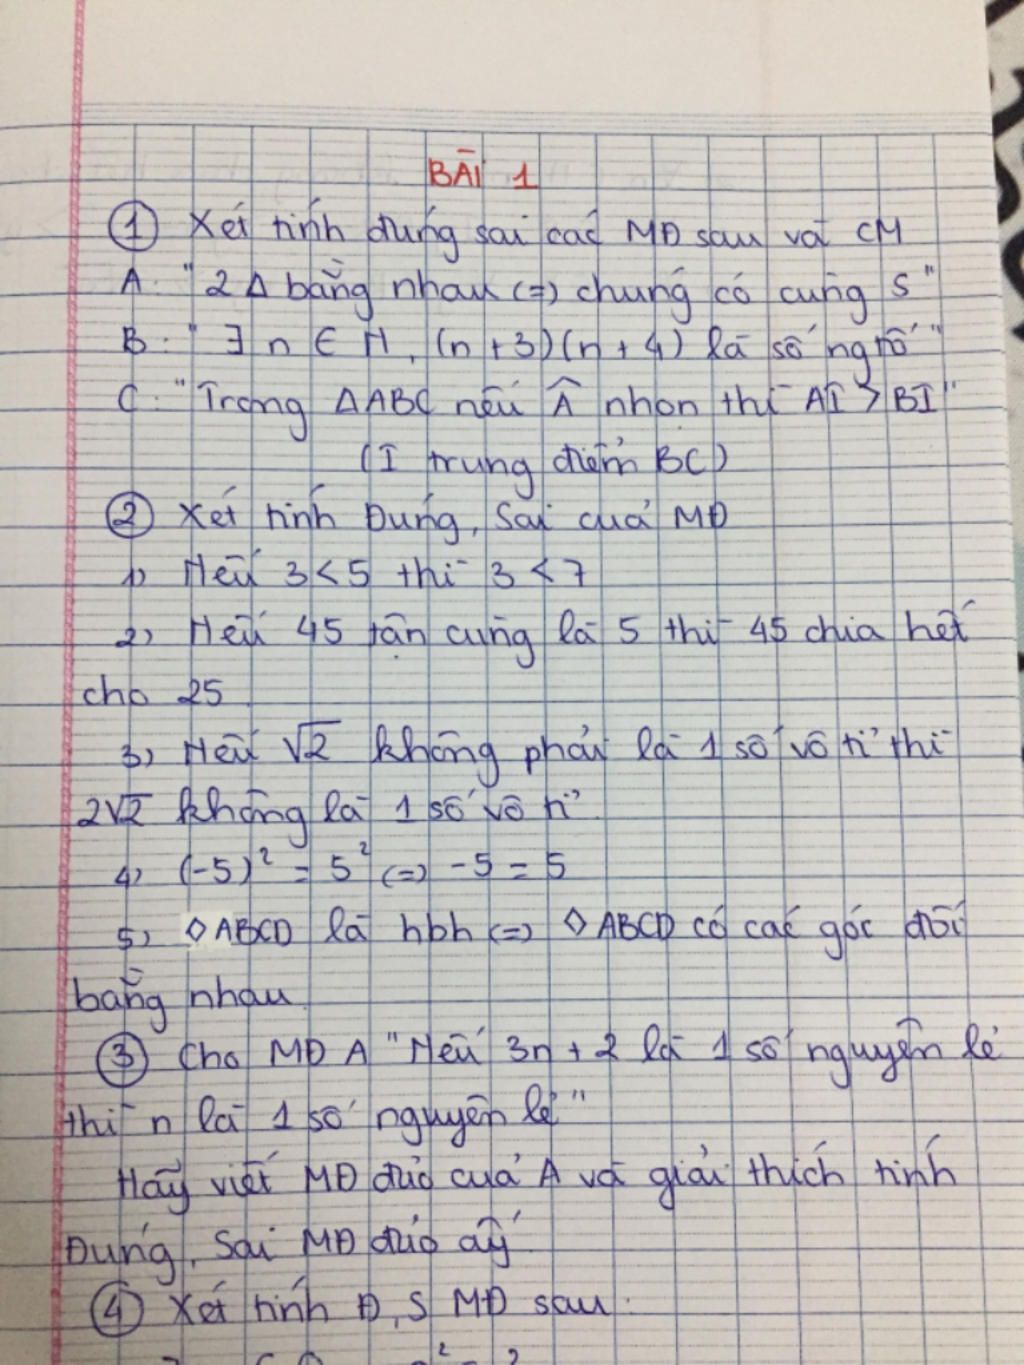 BÀI 1
① Xét tính đúng sai các MĐ sau và CM
A: "2 Δ bằng nhau <=> chúng có cùng S"
B: "∃ n ∈ N, (n + 3)(n + 4) là số ng tố"
C: "Trong ΔABC nếu Â nhọn thì AI > BI"
(I trung điểm BC)
② Xét tính Đúng, Sai của MĐ
1) Nếu 3 < 5 thì 3 < 7
2) Nếu 45 tận cùng là 5 thì 45 chia hết
cho 25
3) Nếu √2 không phải là 1 số vô tỉ thì
2√2 không là 1 số vô tỉ
4) (-5)² = 5² <=> -5 = 5
5) ◇ABCD là hbh <=> ◇ABCD có các góc đối
bằng nhau
③ Cho MĐ A "Nếu 3n + 2 là 1 số nguyên lẻ
thì n là 1 số nguyên lẻ"
Hãy viết MĐ đảo của A và giải thích tính
Đúng, Sai MĐ đảo ấy
④ Xét tính Đ, S MĐ sau: